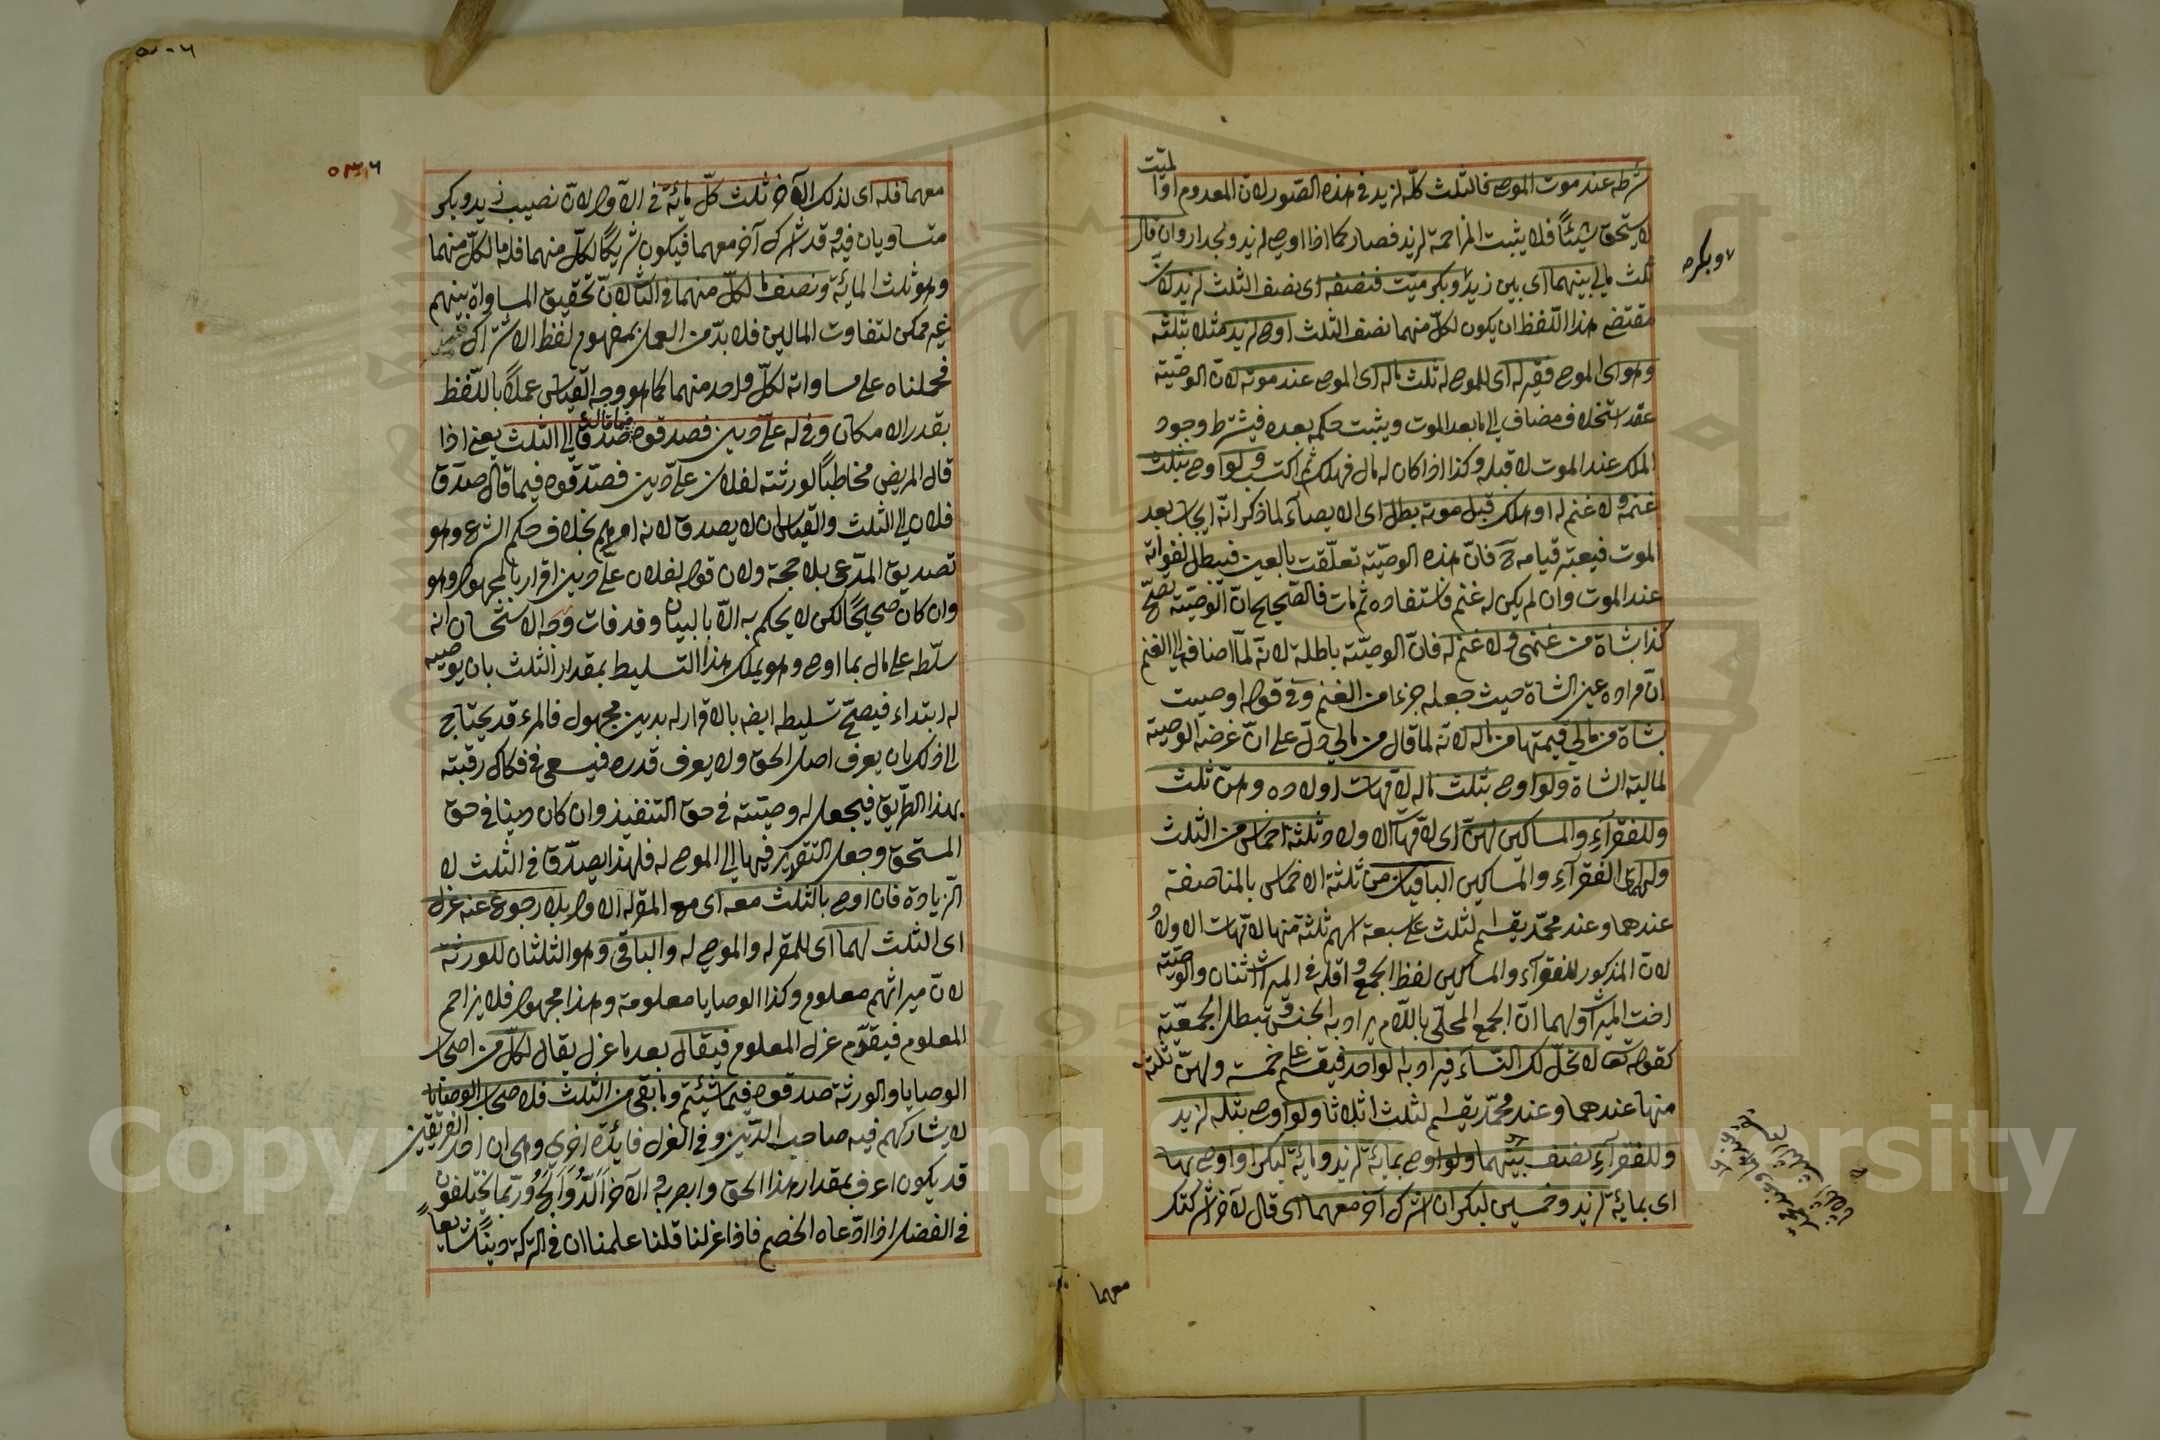 لميت
شرطه عند موت الموصى فالثلث كلّه لزيد فى هذه الصّور لان المعدوم او
لا يستحق شيئًا فلا يثبت المزاحمة لزيد فصار كما اذا اوصى لزيد ولجدار وان قال
ثلث مالى بينهما اى بين زيد وبكر ميّت فنصفه اى نصف الثلث لزيد لان
مقتضى هذا اللّفظ ان يكون لكلّ منهما نصف الثلث اوصى لزيد مثلا بثلثه
وهو اى الموصى فقير له اى للموصى له ثلث ماله اى الموصى عند موته لان الوصيّة
عقد استخلاف مضاف الى ما بعد الموت ويثبت حكمه بعده فيشترط وجود
الملك عند الموت لا قبله وكذا اذا كان له مال فهلك ثم اكتسب ولو اوصى بثلث
غنمه ولا غنم له او هلك قبل موته بطل اى الايصآء لما ذكر انّه ايجاب بعد
الموت فيعتبر قيامه ح فانّ هذه الوصيّة تعلّقت بالعين فيبطل لفواته
عند الموت وان لم يكن له غنم فاستفاده ثم مات فالصّحيح انّ الوصيّة تصحّ
كذا بشاة من غنمى ولا غنم له فانّ الوصيّة باطلة لانّه لمّا اضافه الى الغنم
انّ مراده عين الشاة حيث جعله جزءا من الغنم وفى قوله اوصيت
بشاة من مالى قيمتها من ماله لانه لما قال من مالى دلّ على انّ غرضه الوصية
لمالية الشاة ولو اوصى بثلث ماله لامّهات اولاده وهنّ ثلث
وللفقرآء والمساكين لهنّ اى لامّهات الاولاد ثلثة اخماس من الثلث
ولهما اى الفقرآء والمساكين الباقيان من ثلثة الاخماس بالمناصفة
عندهما وعند محمّد يقسم الثلث على سبعة اسهم ثلثة منها لامّهات الاولاد
لان المذكور للفقرآء والمساكين لفظ الجمع واقله فى الميراث اثنان والوصيّة
اخت الميراث ولهما انّ الجمع المحلّى باللّام يراد به الجنس وتبطل الجمعيّة
كقوله تعالى لا تحلّ لك النساء فيراد به الواحد فيقسم على خمسة ولهنّ ثلثة
منها عندهما وعند محمّد يقسم الثلث اثلاثا ولو اوصى بثلثه لزيد
وللفقرآء نصف بينهما ولو اوصى بمائة لزيد ومائة لبكر او اوصى بها
اى بمائة لزيد وخمسين لبكر ان اشرك آخر معهما اى قال لآخر اشركتك
معهما
وبكر صح
معهما فله اى لذلك الآخر ثلث كلّ مائة فى الاوّل لانّ نصيب زيد وبكر
متساويان فيه وقد شرك آخر معهما فيكون شريكًا لكلّ منهما فله ما لكلّ منهما
وهو ثلث المائة ونصف ما لكلّ منهما فى الثانى لان تحقيق المساواة بينهم
غير ممكن لتفاوت المالين فلا بدّ من العمل بمفهوم لفظ الاشتراك
فحملناه على مساواته لكلّ واحد منهما كما هو وجه القياس عملًا باللّفظ
بقدر الامكان وفى له علىّ دين فصدقوه فيما قال صدّق الى الثلث يعنى اذا
قال المريض مخاطبًا لورثته لفلان علىّ دين فصدّقوه فيما قال صدّق
فلان الى الثلث والقياس ان لا يصدق لانه امرهم بخلاف حكم الشرع وهو
تصديق المدّعى بلا حجة ولان قوله لفلان علىّ دين اقرار بالمجهول وهو
وان كان صحيحًا لكن لا يحكم به الّا بالبيان وقد فات وجه الاستحسان انه
سلّطه على مال بما اوصى وهو يملك هذا التسليط بمقدار الثلث بان يوصيه
له ابتداء فيصحّ تسليطه ايضه بالاقرار له بدين مجهول فالمرء قد يحتاج
الى ذلك بان يعرف اصل الحق ولا يعرف قدره فيسعى فى فكاك رقبته
بهذا الطّريق فيجعل له وصيّته فى حق التنفيذ وان كان دينا فى حق
المستحق وجعل التقدير فيها الى الموصى له فلهذا يصدّق فى الثلث لا
الزّيادة فان اوصى بالثلث معه اى مع المقر له الاول بلا رجوع عنه عزل
اى الثلث لهما اى للمقر له والموصى له والباقى وهو الثلثان للورثة
لان ميراثهم معلوم وكذا الوصايا معلومة وهذا مجهول فلا يزاحم
المعلوم فيقدّم عزل المعلوم فيقال بعد ما عزل يقال لكلّ من اصحاب
الوصايا والورثة صدقوه فيما شئتم وما بقى من الثلث فلاصحاب الوصايا
لا يشاركهم فيه صاحب الدّين وفى العزل فائدة اخرى وهى ان احد الفريقين
قد يكون اعرف بمقدار هذا الحق وابصر به والآخر الدّ والجّ وربّما يختلفون
فى الفضل اذا ادّعاه الخصم فاذا عزلنا قلنا علمنا ان فى التركة دينًا شايعًا